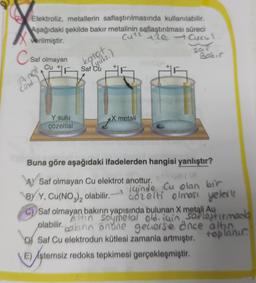 Elektroliz, metallerin saflaştırılmasında kullanılabilir.
Aşağıdaki şekilde bakır metalinin saflaştırılması süreci
verilmiştir.
Saf olmayan
Cu
Saf Cu
katot
Saf
Bakır
Y sulu
çözeltisi
X metali
Buna göre aşağıdaki ifadelerden hangisi yanlıştır?
A) Saf olmayan Cu elektrot anottur.
B) Y, Cu(NO3)2 olabilir. → içinde Cu olan bir
çözelti olması yeterli
C) Saf olmayan bakırın yapısında bulunan X metali Au
olabilir. Altın soymetal old. için saflaştırmada
bakırın önüne geçerse önce altın
toplanır.
D) Saf Cu elektrodun kütlesi zamanla artmıştır.
E) İstemsiz redoks tepkimesi gerçekleşmiştir.